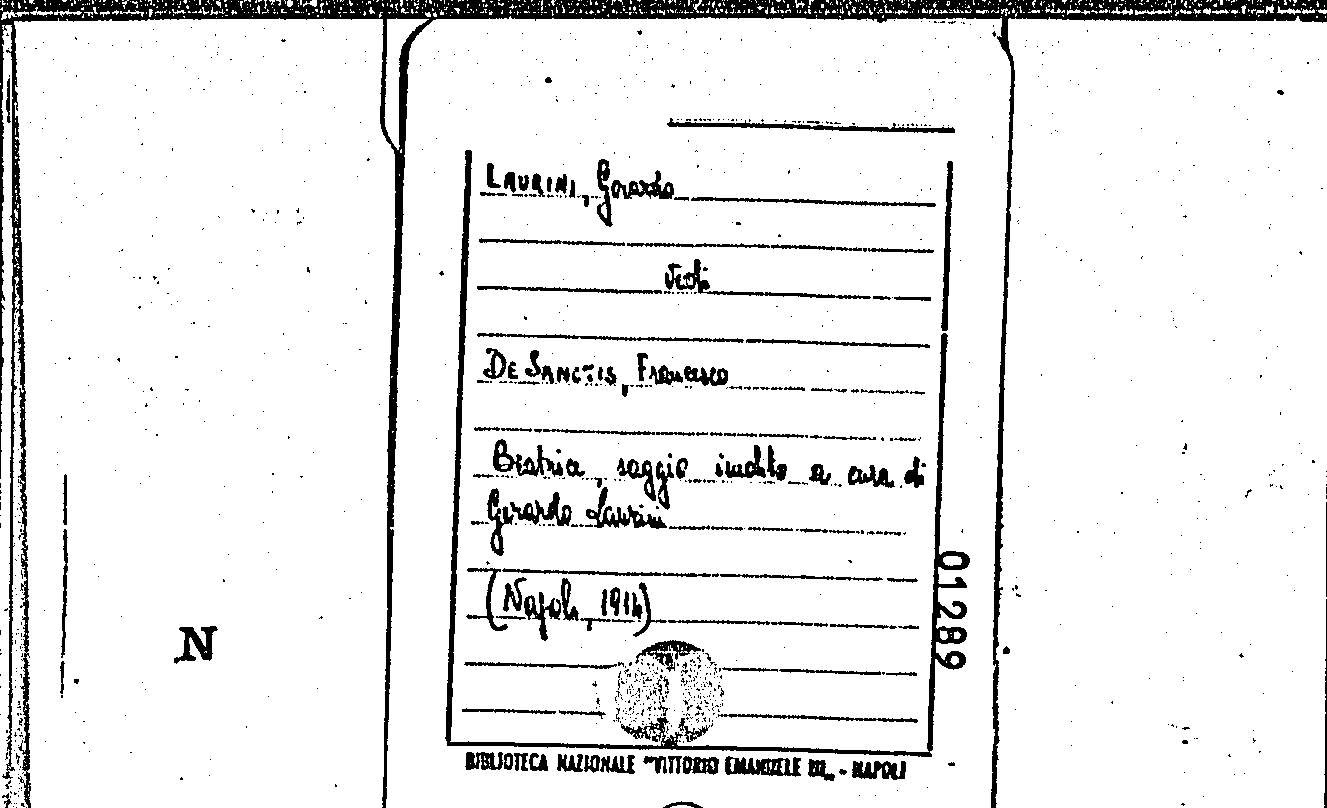 LAURINI, Gerardo
vedi
DE SANCTIS, Francesco
Beatrice, saggio inedito a cura di
Gerardo Laurini
(Napoli, 1914)
01289
N
BIBLIOTECA NAZIONALE "VITTORIO EMANUELE III„ - NAPOLI